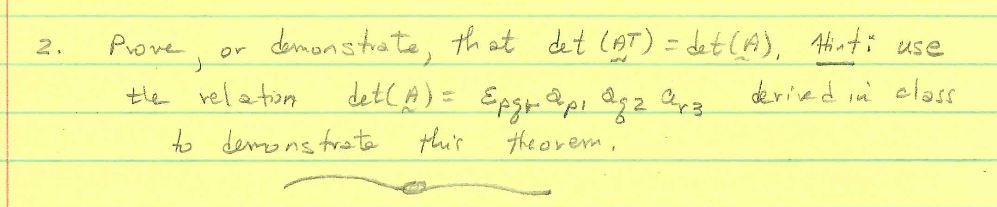 2. Prove, or demonstrate, that det (AT) = det(A). Hint: use
the relation det(A) = εpqr ap1 aq2 ar3 derived in class
to demonstrate this theorem.